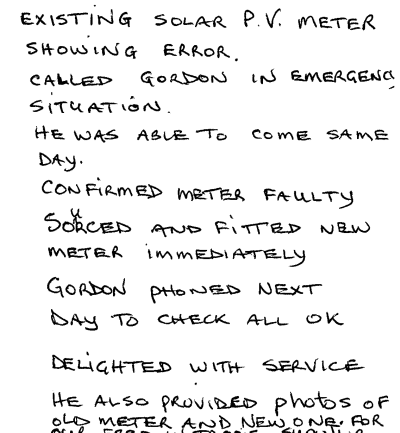 EXISTING SOLAR P.V. METER
SHOWING ERROR.
CALLED GORDON IN EMERGENC
SITUATION.
HE WAS ABLE TO COME SAME
DAY.
CONFIRMED METER FAULTY
SOURCED AND FITTED NEW
METER IMMEDIATELY
GORDON PHONED NEXT
DAY TO CHECK ALL OK
DELIGHTED WITH SERVICE
HE ALSO PROVIDED photos OF
OLD METER AND NEW ONE. FOR
OUR FEED IN TARIFF